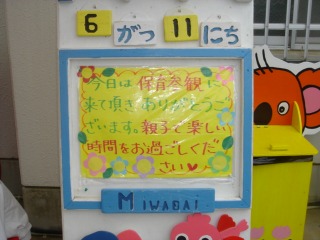 6 がつ 11 にち
今日は保育参観に
来て頂きありがとうご
ざいます。親子で楽しい
時間をお過ごしくだ
さい♥
MIWADAI